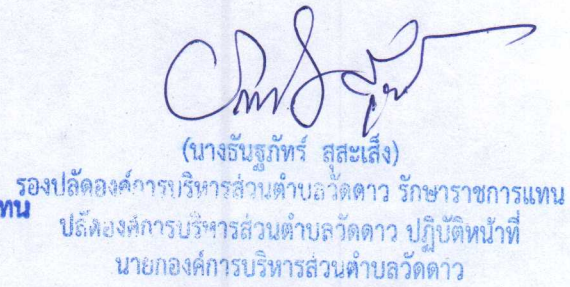 (นางธันฐภัทร์ สุสะเส็ง)
รองปลัดองค์การบริหารส่วนตำบลวัดดาว รักษาราชการแทน
ทน
ปลัดองค์การบริหารส่วนตำบลวัดดาว ปฏิบัติหน้าที่
นายกองค์การบริหารส่วนตำบลวัดดาว